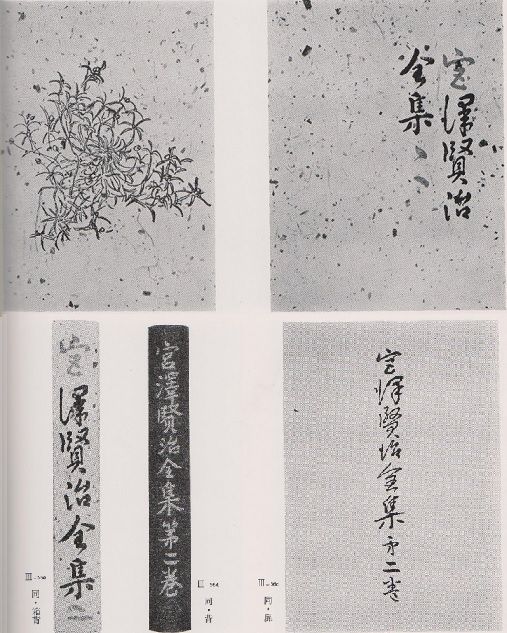 宮澤賢治
全集二
宮澤賢治全集第二巻
Ⅲ
同・扉
宮澤賢治全集第二巻
同・背
宮澤賢治全集二
Ⅲ
同・函背